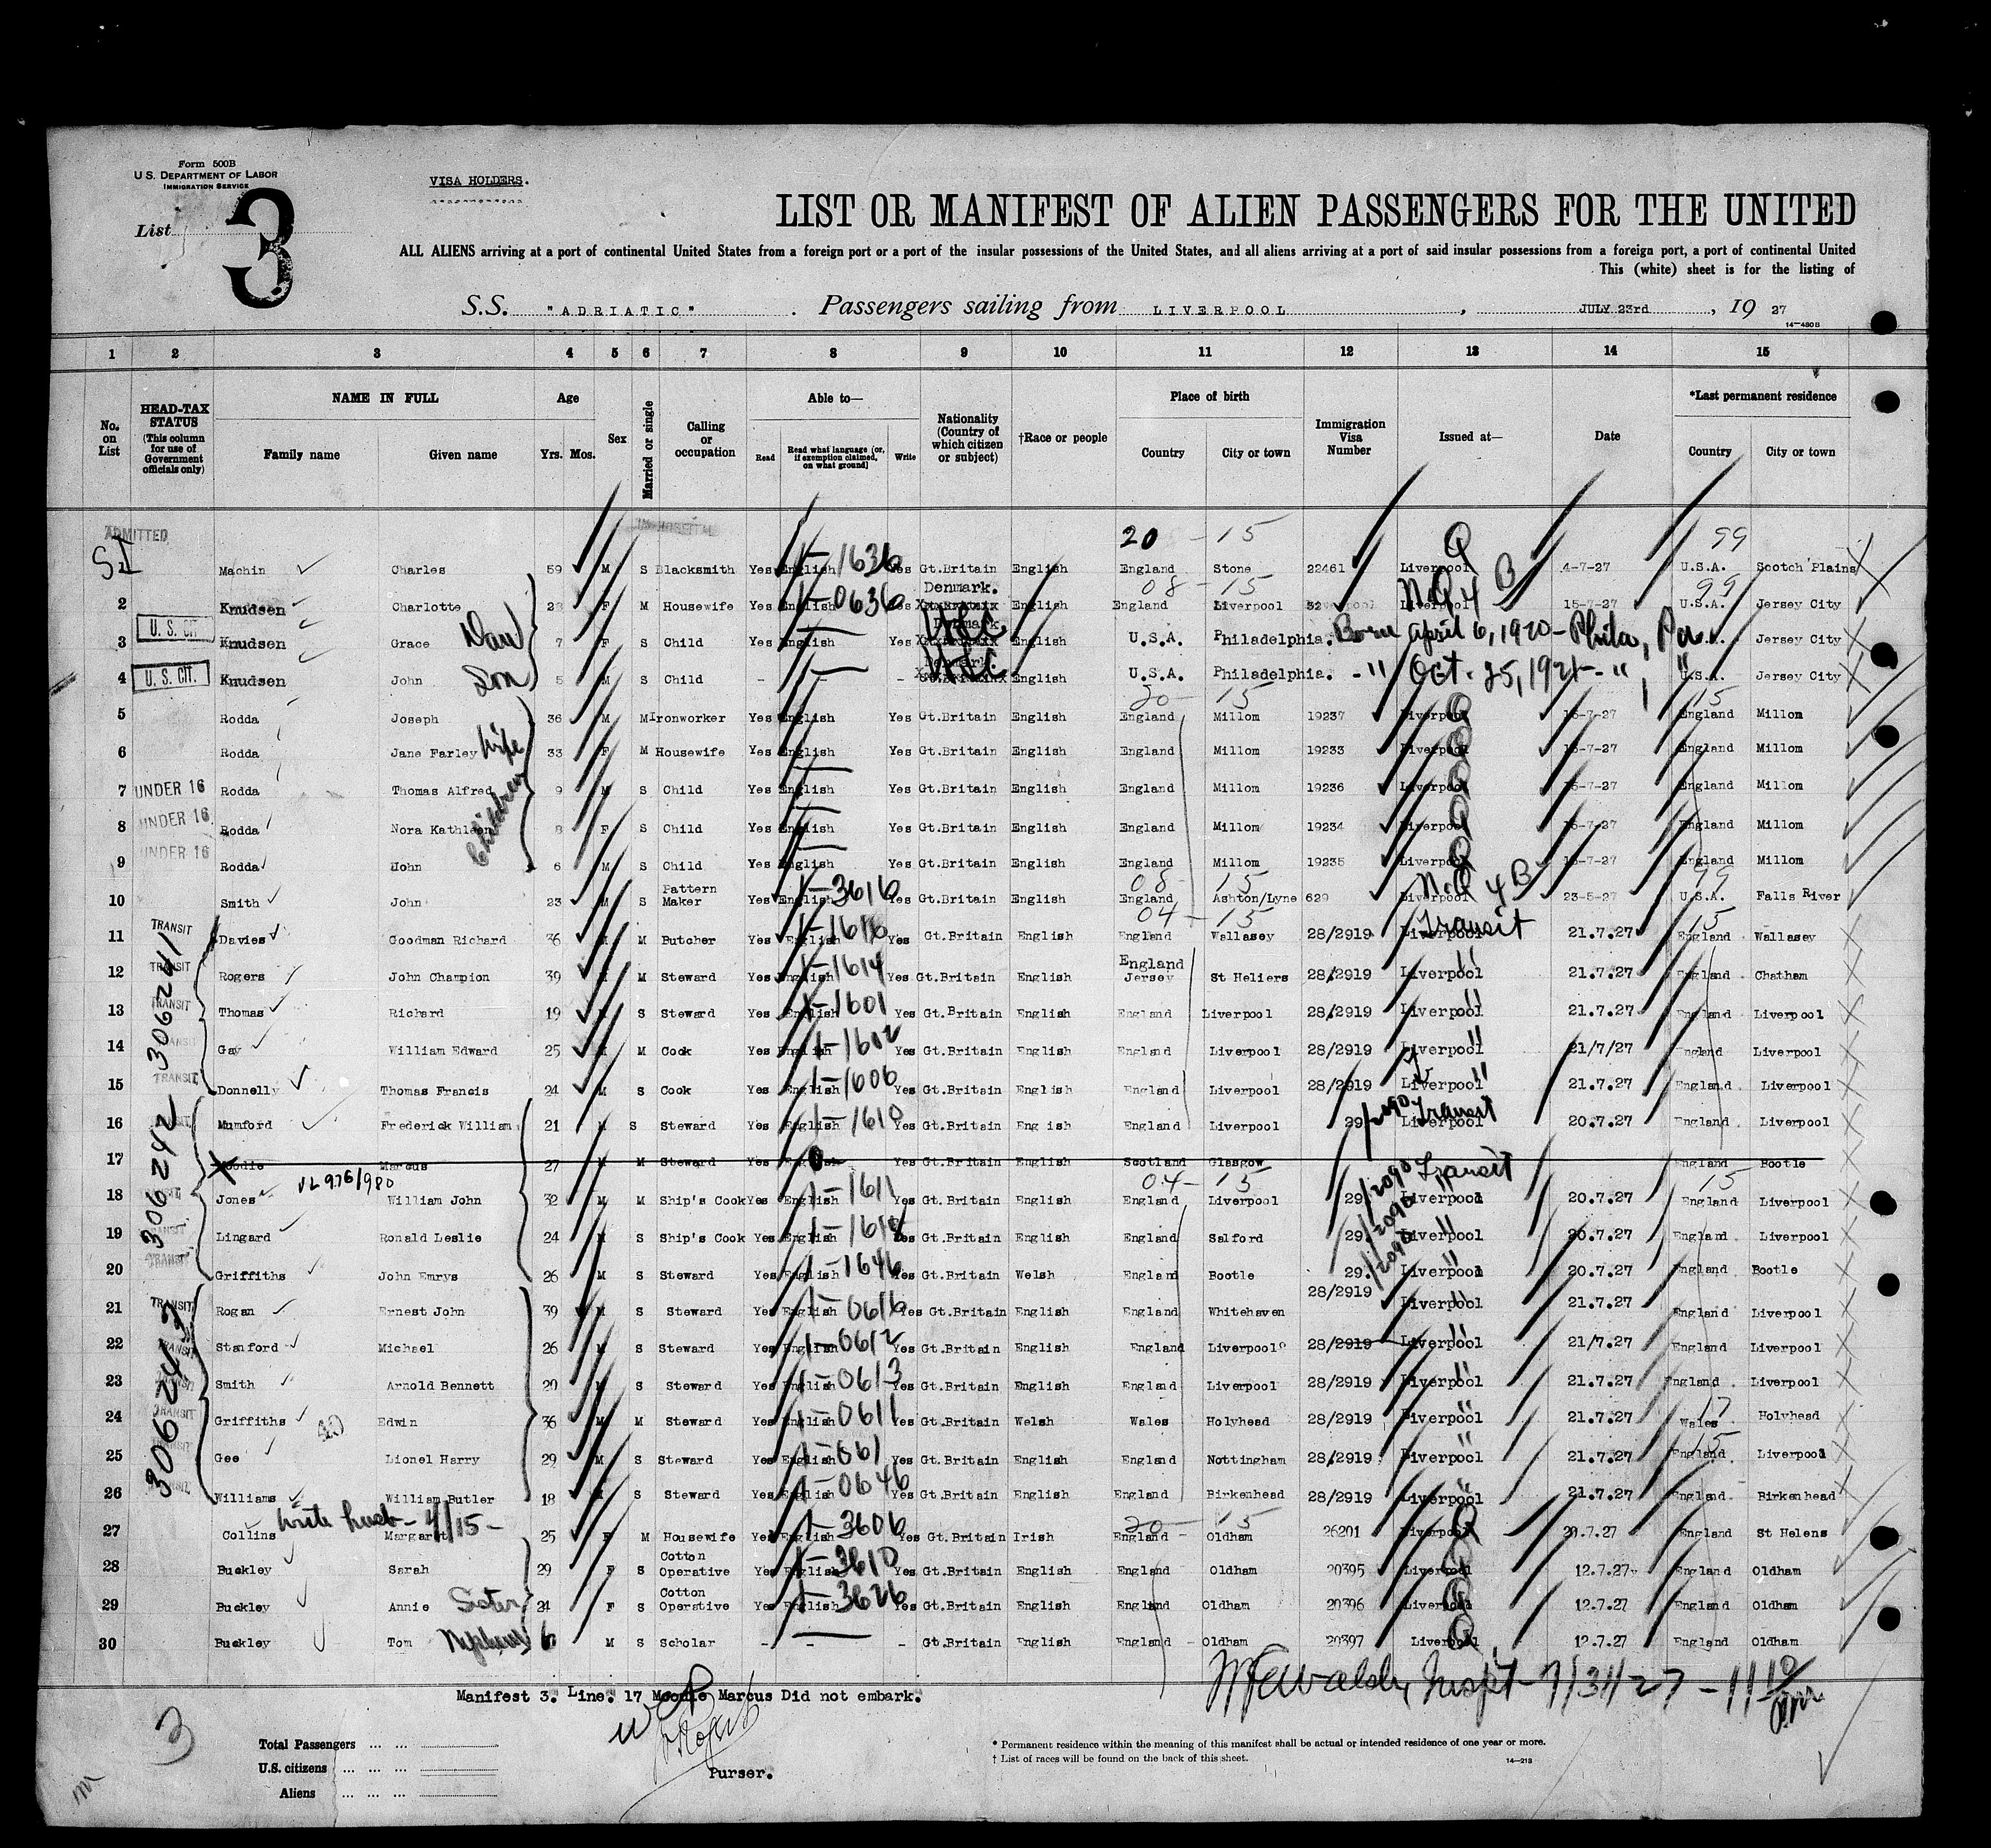 Form 500B
U.S. DEPARTMENT OF LABOR
IMMIGRATION SERVICE
VISA HOLDERS.
List 3
LIST OR MANIFEST OF ALIEN PASSENGERS FOR THE UNITED
ALL ALIENS arriving at a port of continental United States from a foreign port or a port of the insular possessions of the United States, and all aliens arriving at a port of said insular possessions from a foreign port, a port of continental United
This (white) sheet is for the listing of
S.S. "ADRIATIC" . Passengers sailing from LIVERPOOL , JULY 23rd , 19 27
14-480B
1 2 3 4 5 6 7 8 9 10 11 12 13 14 15
No. on List
HEAD-TAX STATUS (This column for use of Government officials only)
NAME IN FULL Family name Given name
Age Yrs. Mos.
Sex
Married or single
Calling or occupation
Able to— Read Read what language (or, if exemption claimed, on what ground) Write
Nationality (Country of which citizen or subject)
†Race or people
Place of birth Country City or town
Immigration Visa Number
Issued at—
Date
*Last permanent residence Country City or town
ADMITTED 20 - 15 Q 99
SI Machin Charles 59 M S Blacksmith Yes English 1-1636 Yes Gt.Britain English England Stone 22461 Liverpool 4-7-27 U.S.A. Scotch Plains
08 - 15 NQ 4 B 99
2 Knudsen Charlotte 28 F M Housewife Yes English 1-0636 Yes Denmark. English England Liverpool Liverpool 15-7-27 U.S.A. Jersey City
3 U.S. CIT Knudsen Grace Dau 7 F S Child Yes English Denmark English U.S.A. Philadelphia. Born April 6, 1920 - Phila, Pa Jersey City
4 U.S. CIT. Knudsen John Son 5 M S Child - - - Denmark English U.S.A. Philadelphia. - " Oct. 25, 1921 - " , " U.S.A. Jersey City
20 - 15 15
5 Rodda Joseph 36 M M Ironworker Yes English Yes Gt.Britain English England Millom 19237 Liverpool Q 15-7-27 England Millom
6 Rodda Jane Farley Wife 33 F M Housewife Yes English Yes Gt.Britain English England Millom 19233 Liverpool Q 15-7-27 England Millom
7 UNDER 16 Rodda Thomas Alfred 9 M S Child Yes English Yes Gt.Britain English England Millom 19236 Liverpool Q 15-7-27 England Millom
8 UNDER 16. Rodda Nora Kathleen Children 8 F S Child Yes English Yes Gt.Britain English England Millom 19234 Liverpool Q 15-7-27 England Millom
9 UNDER 16 Rodda John 6 M S Child Yes English Yes Gt.Britain English England Millom 19235 Liverpool Q 15-7-27 England Millom
08 - 15 NQ 4 B 99
10 Smith John 23 M S Pattern Maker Yes English 1-3616 Yes Gt.Britain English England Ashton/Lyne 629 Liverpool 23-5-27 U.S.A. Falls River
04 - 15 Transit 15
11 TRANSIT Davies Goodman Richard 36 M M Butcher Yes English 1-1616 Yes Gt.Britain English England Wallasey 28/2919 Liverpool 21.7.27 England Wallasey
12 TRANSIT Rogers John Champion 39 M M Steward Yes English 1-1614 Yes Gt.Britain English England Jersey St Heliers 28/2919 Liverpool " 21.7.27 England Chatham
306241
13 TRANSIT Thomas Richard 19 M S Steward Yes English 1-1601 Yes Gt.Britain English England Liverpool 28/2919 Liverpool " 21.7.27 England Liverpool
14 TRANSIT Gay William Edward 25 M M Cook Yes English 1-1602 Yes Gt.Britain English England Liverpool 28/2919 Liverpool " 21/7/27 England Liverpool
15 TRANSIT Donnelly Thomas Francis 24 M S Cook Yes English 1-1606 Yes Gt.Britain English England Liverpool 28/2919 Liverpool " 21.7.27 England Liverpool
16 Mumford Frederick William 21 M S Steward Yes English 1-1610 Yes Gt.Britain English England Liverpool 29/2090 Transit Liverpool 20.7.27 England Liverpool
17 Moodie Marcus 27 M M Steward Yes English Yes Gt.Britain English Scotland Glasgow England Bootle
306242
VL 976/980 04 - 15 Transit 15
18 Jones William John 32 M M Ship's Cook Yes English 1-1611 Yes Gt.Britain English England Liverpool 29/2090 Liverpool 20.7.27 England Liverpool
19 TRANSIT Lingard Ronald Leslie 24 M S Ship's Cook Yes English Yes Gt.Britain English England Salford 29/2090 Liverpool " 20.7.27 England Liverpool
20 TRANSIT Griffiths John Emrys 26 M S Steward Yes English 1-1646 Yes Gt.Britain Welsh England Bootle 29/2090 Liverpool " 20.7.27 England Bootle
21 TRANSIT Rogan Ernest John 39 M S Steward Yes English 1-0616 Yes Gt.Britain English England Whitehaven 28/2919 Liverpool " 21.7.27 England Liverpool
22 TRANSIT Stanford Michael 26 M S Steward Yes English 1-0612 Yes Gt.Britain English England Liverpool 28/2919 Liverpool " 21/7.27 England Liverpool
306243
23 Smith Arnold Bennett 29 M S Steward Yes English 1-0613 Yes Gt.Britain English England Liverpool 28/2919 Liverpool " 21.7.27 England Liverpool
24 TRANSIT Griffiths Edwin 36 M M Steward Yes English 1-0611 Yes Gt.Britain Welsh Wales Holyhead 28/2919 Liverpool " 21.7.27 Wales 17 Holyhead
25 Gee Lionel Harry 29 M S Steward Yes English 1-061 Yes Gt.Britain English England Nottingham 28/2919 Liverpool " 21.7.27 England 15 Liverpool
26 Williams William Butler 18 M S Steward Yes English 1-0646 Yes Gt.Britain English England Birkenhead 28/2919 Liverpool " 21.7.27 England Birkenhead
20 - 15
27 Collins Margaret 25 F M Housewife Yes English 1-3606 Yes Gt.Britain Irish England Oldham 26201 Liverpool Q 20.7.27 England St Helens
28 Buckley Sarah 29 F S Cotton Operative Yes English 1-3610 Yes Gt.Britain English England Oldham 20395 Liverpool Q 12.7.27 England Oldham
29 Buckley Annie Sister 24 F S Cotton Operative Yes English 1-3626 Yes Gt.Britain English England Oldham 20396 Liverpool Q 12.7.27 England Oldham
30 Buckley Tom Nephew 6 M S Scholar - - - Gt.Britain English England Oldham 20397 Liverpool Q 12.7.27 England Oldham
Manifest 3. Line. 17 Moodie Marcus Did not embark.
Inspt - 7/31/27 - 11 10 am
3
Purser.
Total Passengers ... ...
U.S. citizens ... ... ...
Aliens ... ... ...
* Permanent residence within the meaning of this manifest shall be actual or intended residence of one year or more.
† List of races will be found on the back of this sheet.
14-213